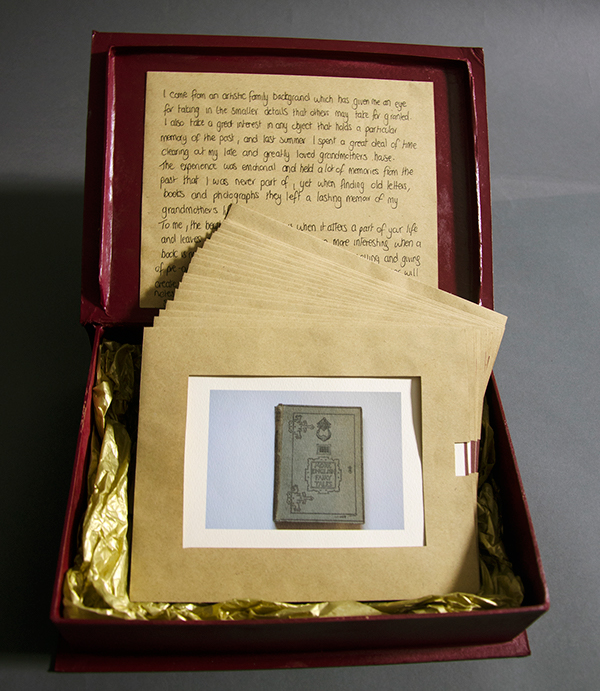 I come from an artistic family background which has given me an eye
for taking in the smaller details that others may take for granted.
I also take a great interest in any object that holds a particular
memory of the past, and last summer I spent a great deal of time
clearing out my late and greatly loved grandmothers house.
The experience was emotional and held a lot of memories from the
past that I was never part of, yet when finding old letters,
books and photographs they left a lasting memoir of my
grandmothers
To me, the when it alters a part of your life
and leaves more interesting when a
book is and giving
of pre will
MORE
ENGLISH
FAIRY
TALES